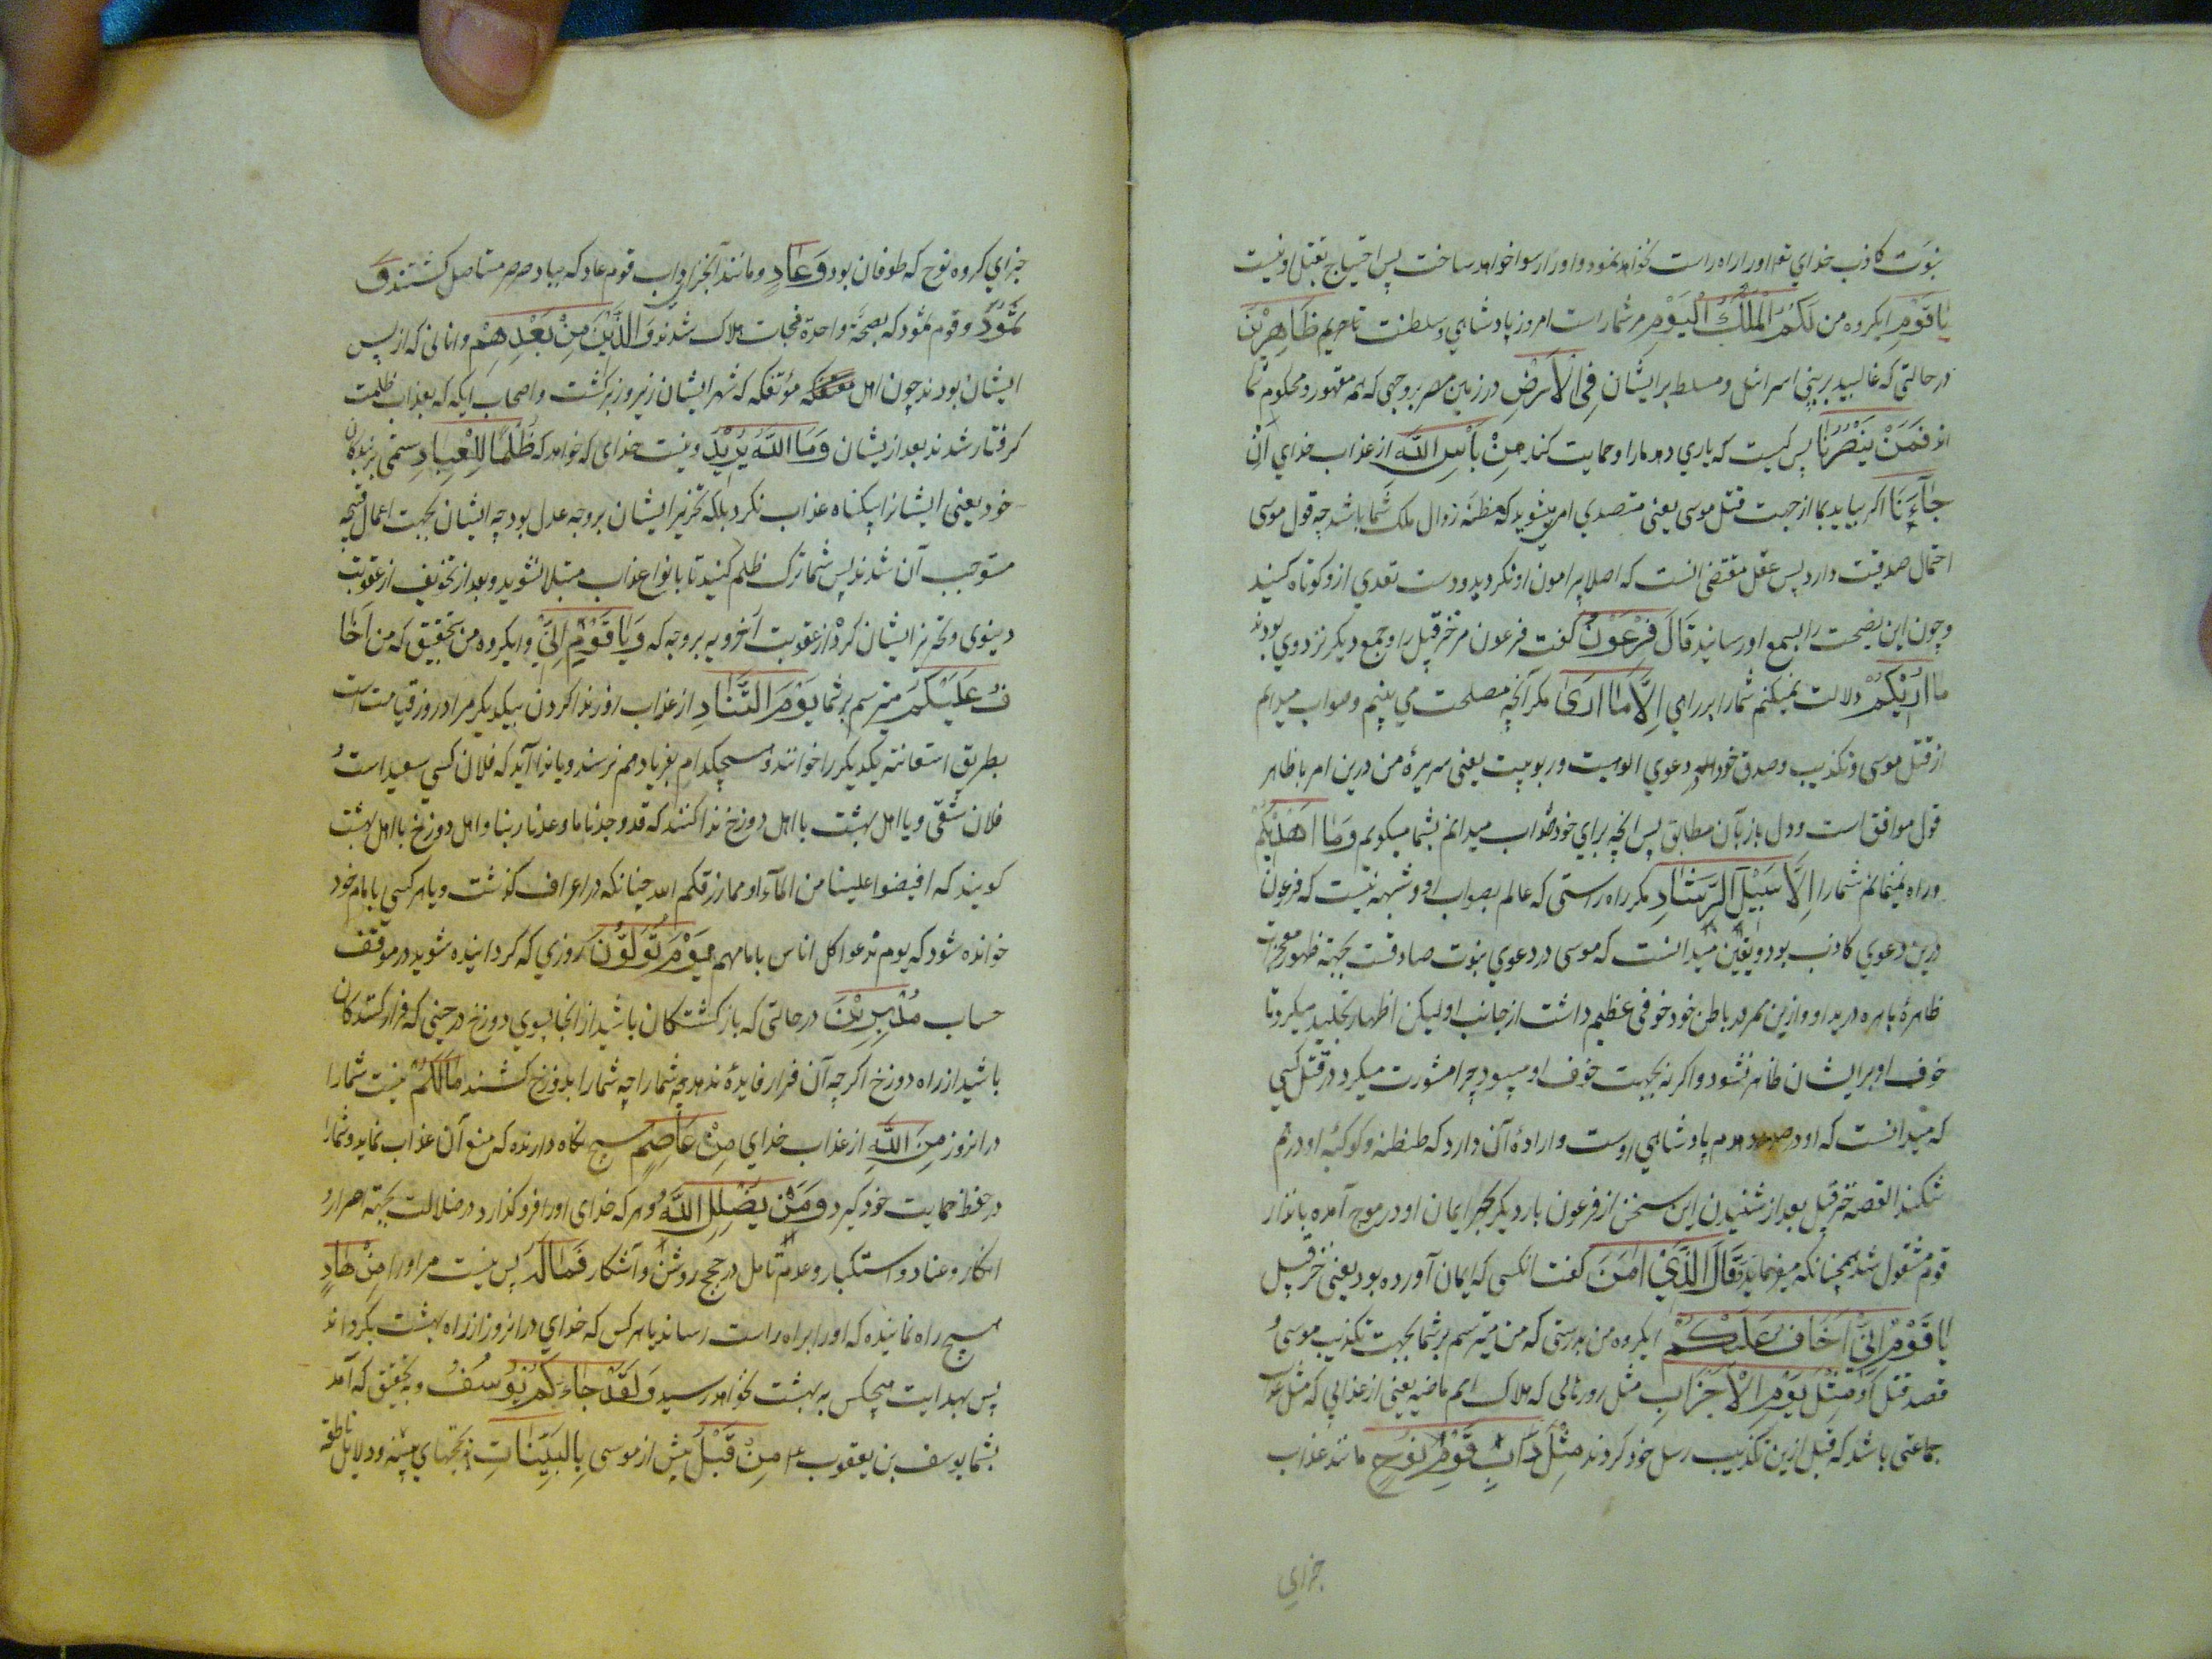 نبوت کاذب خدای تع اورا راه راست نخواهد نمود و اورا رسوا خواهد ساخت پس احتیاج بقتل او نیست
یَا قَوْمِ ایکروه من لَکُمُ الْمُلْکُ الْیَوْمَ مر شما راست امروز پادشاهی و سلطنت ظَاهِرِیْنَ
در حالتی که غالبید بر بنی اسرائیل و مسلط بر ایشان فِی الْاَرْضِ در زمین مصر بر وجهی که همه مقهور و محکوم شما
اند فَمَنْ یَنْصُرُنَا پس کیست که یاری دهد ما را و حمایت کند مِنْ بَأْسِ اللّٰهِ از عذاب خدای اِنْ
جَآءَنَا اکر بیاید بما از جهت قتل موسی یعنی متصدی امری مشوید که مظنه زوال ملک شما باشد چه قول موسی
احتمال صدقیت دارد پس عقل مقتضی انست که اصلا پیرامون او نکردید و دست تعدی ازو کوتاه کنید
و چون این نصیحت را بسمع او رسانید قَالَ فِرْعَوْنُ کفت فرعون مر خزقیل را و جمع دیکر نزد وی بودند
مَا اُرِیْکُمْ دلالت نمیکنم شما را بر رایی اِلَّا مَا اَرٰی مکر آنچه مصلحت می بینم و صواب میدانم
از قتل موسی و تکذیب و صدق خود در دعوی الوهیت و ربوبیت یعنی سریرهٔ من درین امر با ظاهر
قول موافق است و دل با زبان مطابق پس انچه برای خود صواب میدانم بشما میکویم وَمَا اَهْدِیْکُمْ
و راه نمینمایم شما را اِلَّا سَبِیْلَ الرَّشَادِ مکر راه راستی که عالم بصواب او و شبهه نیست که فرعون
درین دعوی کاذب بود و یقین میدانست که موسی در دعوی نبوت صادقست بجهة ظهور معجزات
ظاهرهٔ باهره در ید او و ازین ممر در باطن خود خوفی عظیم داشت از جانب او لیکن اظهار تجلید میکرد تا
خوف او بر ایشان ظاهر نشود و اکر نه بجهت خوف او میبود چرا مشورت میکرد در قتل کسی
که میدانست که او در صدد هدم پادشاهی اوست و ارادهٔ آن دارد که طنطنه و کوکبهٔ او در هم
شکند القصه خزقیل بعد از شنیدن این سخن از فرعون بار دیکر بحر ایمان او در موج آمده بانذار
قوم مشغول شد همچنانکه میفرماید وَقَالَ الَّذِیْ اٰمَنَ کفت انکسی که ایمان آورده بود یعنی خزقیل
یَا قَوْمِ اِنِّیْ اَخَافُ عَلَیْکُمْ ایکروه من بدرستی که من میترسم بر شما بجهت تکذیب موسی و
قصد قتل او مِثْلَ یَوْمِ الْاَحْزَابِ مثل روزهائی که هلاک امم ماضیه یعنی از عذابی که مثل عذاب
جماعتی باشد که قبل ازین تکذیب رسل خود کردند مِثْلَ دَاْبِ قَوْمِ نُوْحٍ مانند عذاب
جزای
جزای کروه نوح که طوفان بود وَعَادٍ و مانند آنجزا و داب قوم عاد که بباد صرصر مستاصل کشتند وَ
ثَمُوْدَ و قوم ثمود که بصیحهٔ واحدة فجات هلاک شدند وَالَّذِیْنَ مِنْ بَعْدِهِمْ و انانی که از پس
ایشان بودند چون اهل مؤتفکه که شهر ایشان زیر و زبر کشت و اصحاب ایکه که بعذاب ظلمت
کرفتار شدند بعد ازیشان وَمَا اللّٰهُ یُرِیْدُ و نیست خدای که خواهد که ظُلْمًا لِلْعِبَادِ ستمی بر بندکان
خود یعنی ایشانرا بیکناه عذاب نکرد بلکه تحزیر ایشان بر وجه عدل بود چه ایشان بجهت اعمال قبیحه
مستوجب آن شدند پس شما ترک ظلم کنید تا بانواع عذاب مبتلا نشوید و بعد از تخویف از عقوبت
دنیوی و تحزیر ایشان کرد از عقوبت اخرویه بر وجه که وَیَا قَوْمِ اِنِّیْ و ایکروه من بتحقیق که من اَخَا
فُ عَلَیْکُمْ میترسم بر شما یَوْمَ التَّنَادِ از عذاب روز ندا کردن بیکدیکر مراد روز قیامت است
بطریق استعانت یکدیکر را خوانند و هیچکدام بفریاد هم نرسند و یا ندا آید که فلان کسی سعید است و
فلان شقی و یا اهل بهشت با اهل دوزخ ندا کنند که قد وجدنا ما وعدنا ربنا و اهل دوزخ با اهل بهشت
کویند که افیضوا علینا من الماء او مما رزقکم الله چنانکه در اعراف کذشت و یا هر کسی بامام خود
خوانده شود که یوم ندعوا کل اناس بامامهم یَوْمَ تُوَلُّوْنَ روزی که کردانیده شوید در موقف
حساب مُدْبِرِیْنَ در حالتی که باز کشتکان باشید از انجا بسوی دوزخ در حینی که فرار کنندکان
باشید از راه دوزخ اکر چه آن فرار فایدهٔ ندهد شما را چه شما را بدوزخ کشند مَا لَکُمْ نیست شما را
درانروز مِنَ اللّٰهِ از عذاب خدای مِنْ عَاصِمٍ هیچ نکاه دارنده که منع آن عذاب نماید و شما را
در حفظ حمایت خود کیرد وَمَنْ یُضْلِلِ اللّٰهُ و هر که خدای اورا فرو کذارد در ضلالت بجهة اصرار و
انکار و عناد و استکبار و عدم تامل در حجج روشن و آشکار فَمَا لَهُ پس نیست مر او را مِنْ هَادٍ
هیچ راه نماینده که اورا براه راست رساند یا هر کس که خدای درانروز از راه بهشت بکرداند
پس بهدایت هیچکس به بهشت نخواهد رسید وَلَقَدْ جَاءَکُمْ یُوْسُفُ و بتحقیق که آمد
بشما یوسف بن یعقوب مِنْ قَبْلُ پیش از موسی بِالْبَیِّنَاتِ بحجتهای و دلایل ناطقه